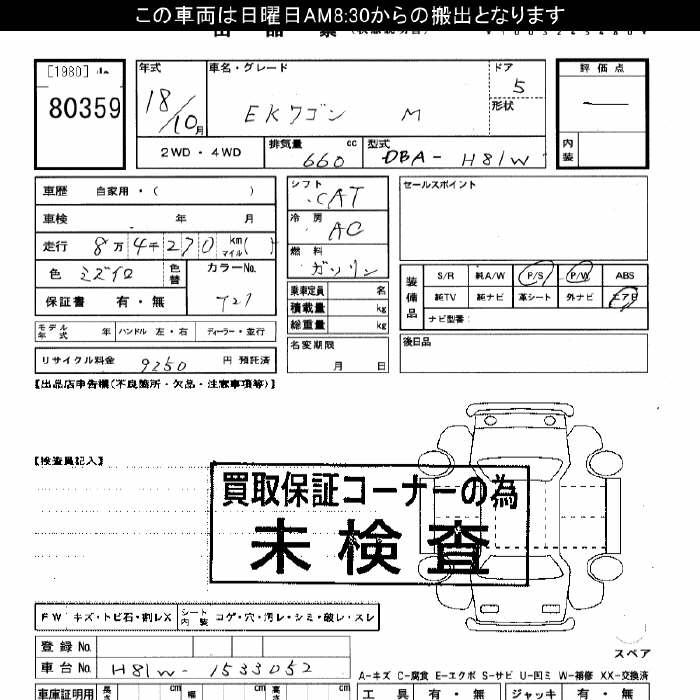 この車両は日曜日AM8:30からの搬出となります
[1980]
80359
年式
18/10月
車名・グレード
EKワゴン M
ドア
5
形状
評価点
内装
2WD・4WD
排気量 cc
660
型式
DBA-H81W
車歴 自家用・( )
車検 年 月
走行 8万4千270km マイル( )
色 ミズイロ 色替
カラーNo.
T27
保証書 有・無
シフト
CAT
冷房
AC
燃料
ガソリン
乗車定員 名
積載量 kg
総重量 kg
名変期限
月 日
セールスポイント
装備品
S/R 純A/W P/S P/W ABS
純TV 純ナビ 革シート 外ナビ エアB
ナビ型番:
後日品
モデル年式 年 ハンドル 左・右 ディーラー・並行
リサイクル料金 9250 円 預託済
【出品店申告欄(不良箇所・欠品・注意事項等)】
【検査員記入】
買取保証コーナーの為
未検査
FW キズ・トビ石・割レX シート内装 コゲ・穴・汚レ・シミ・破レ・スレ
登録No.
車台No. H81W-1533052
スペア
A-キズ C-腐食 E-エクボ S-サビ U-凹ミ W-補修 XX-交換済
車庫証明用 長さ cm 幅 cm 高さ cm
工具 有・無 ジャッキ 有・無